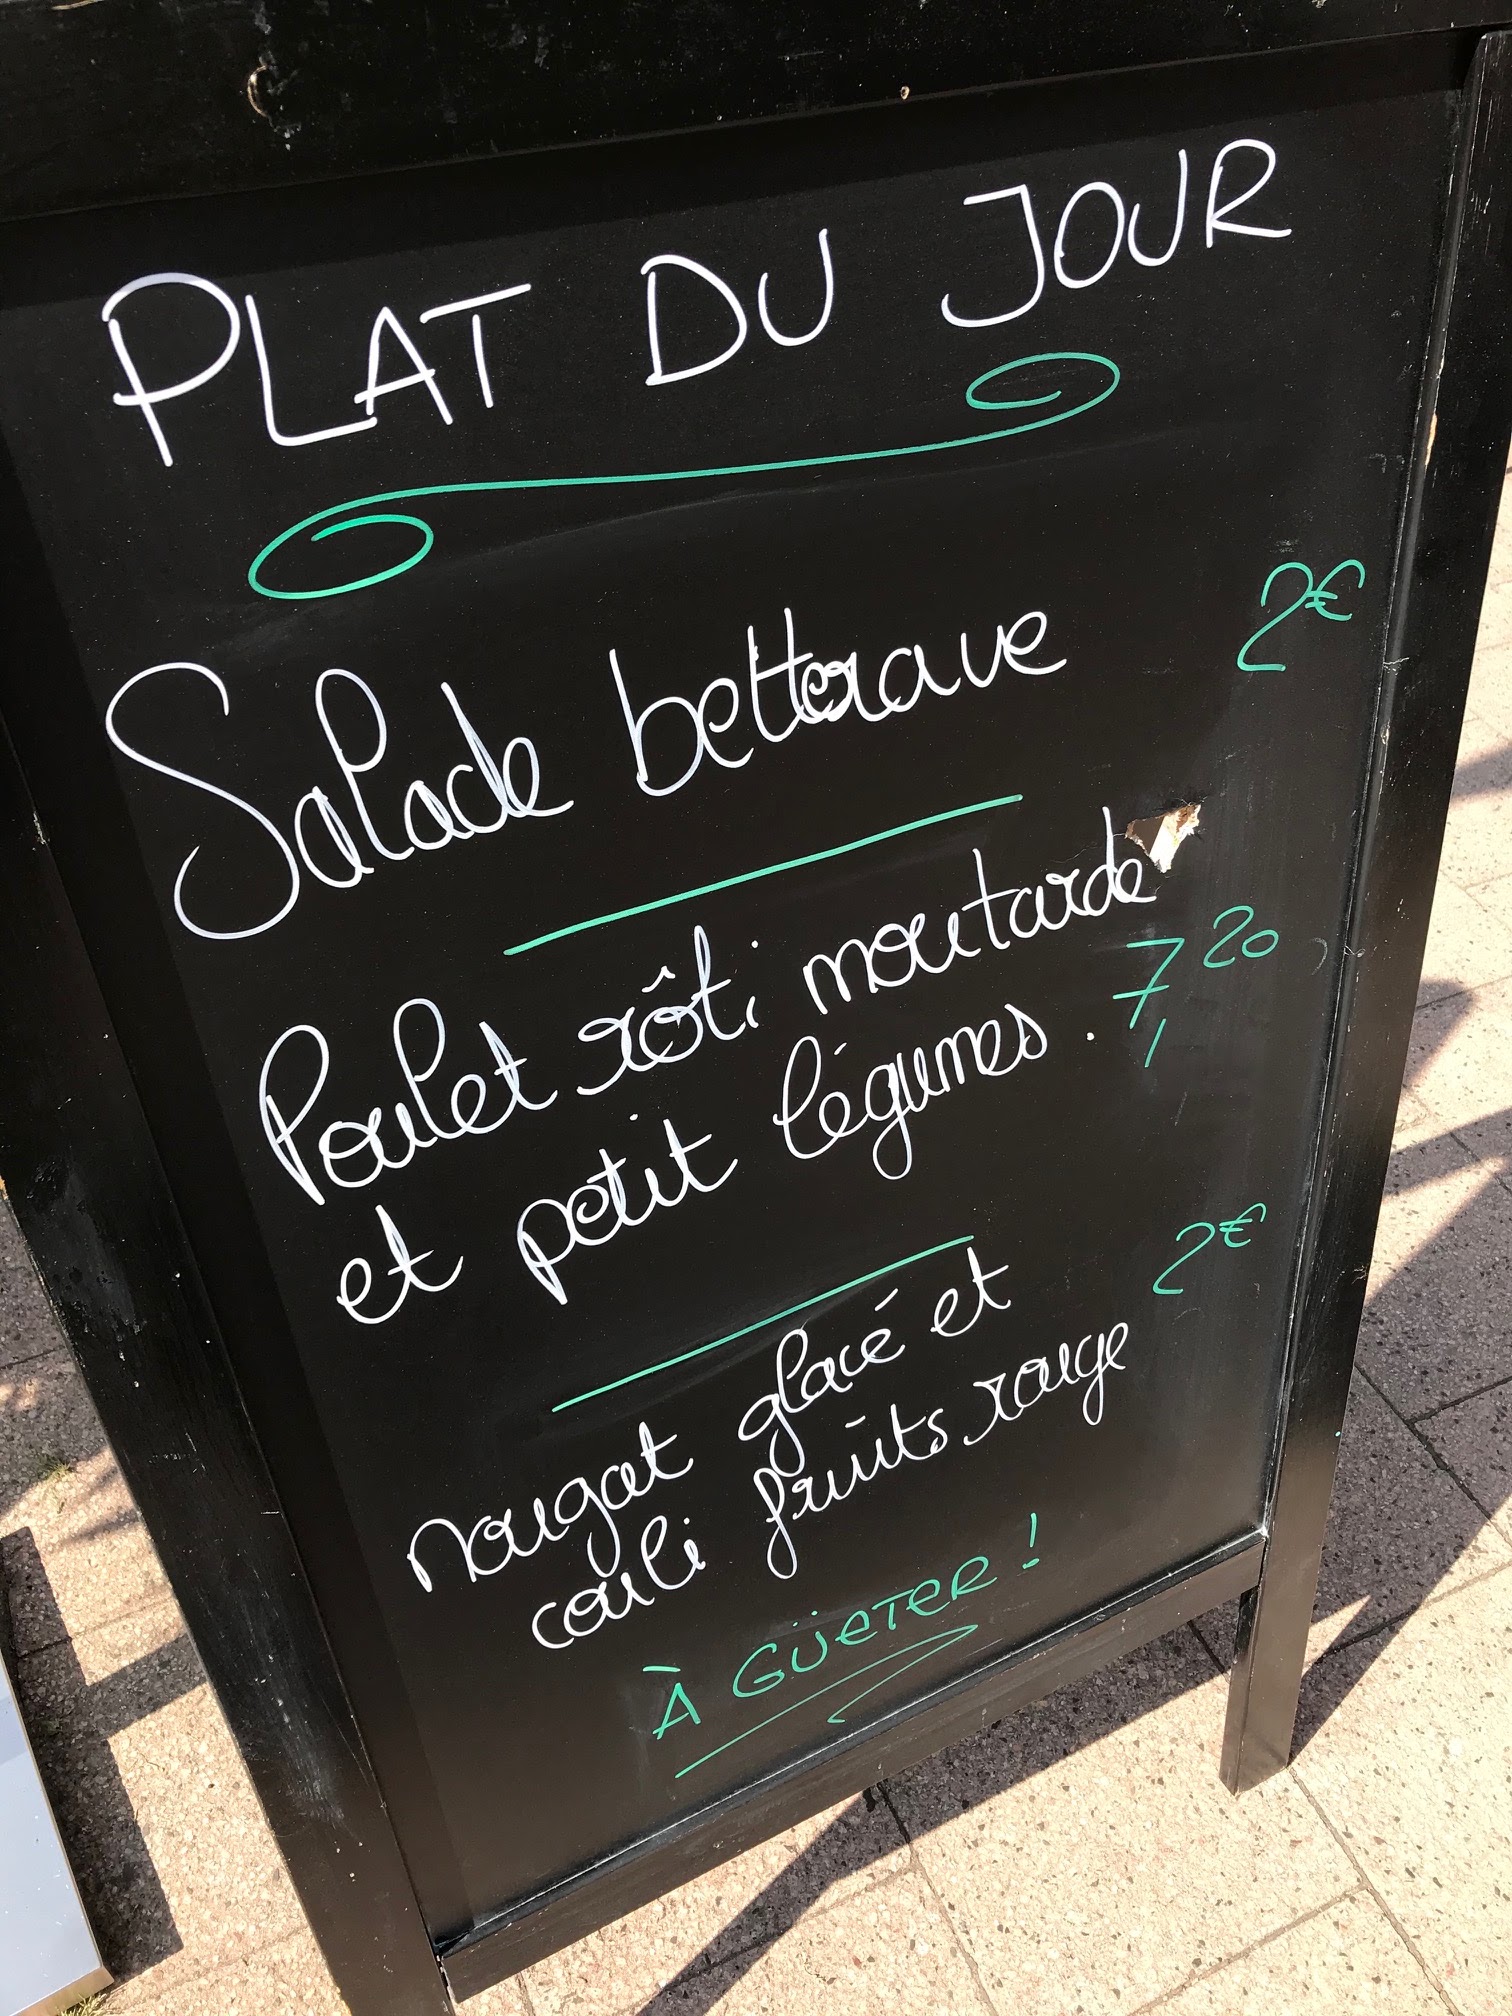 PLAT DU JOUR
Salade betterave 2€
Poulet rôti moutarde
et petit légumes. 7,20
nougat glacé et 2€
couli fruits rouge
À GÜETER !